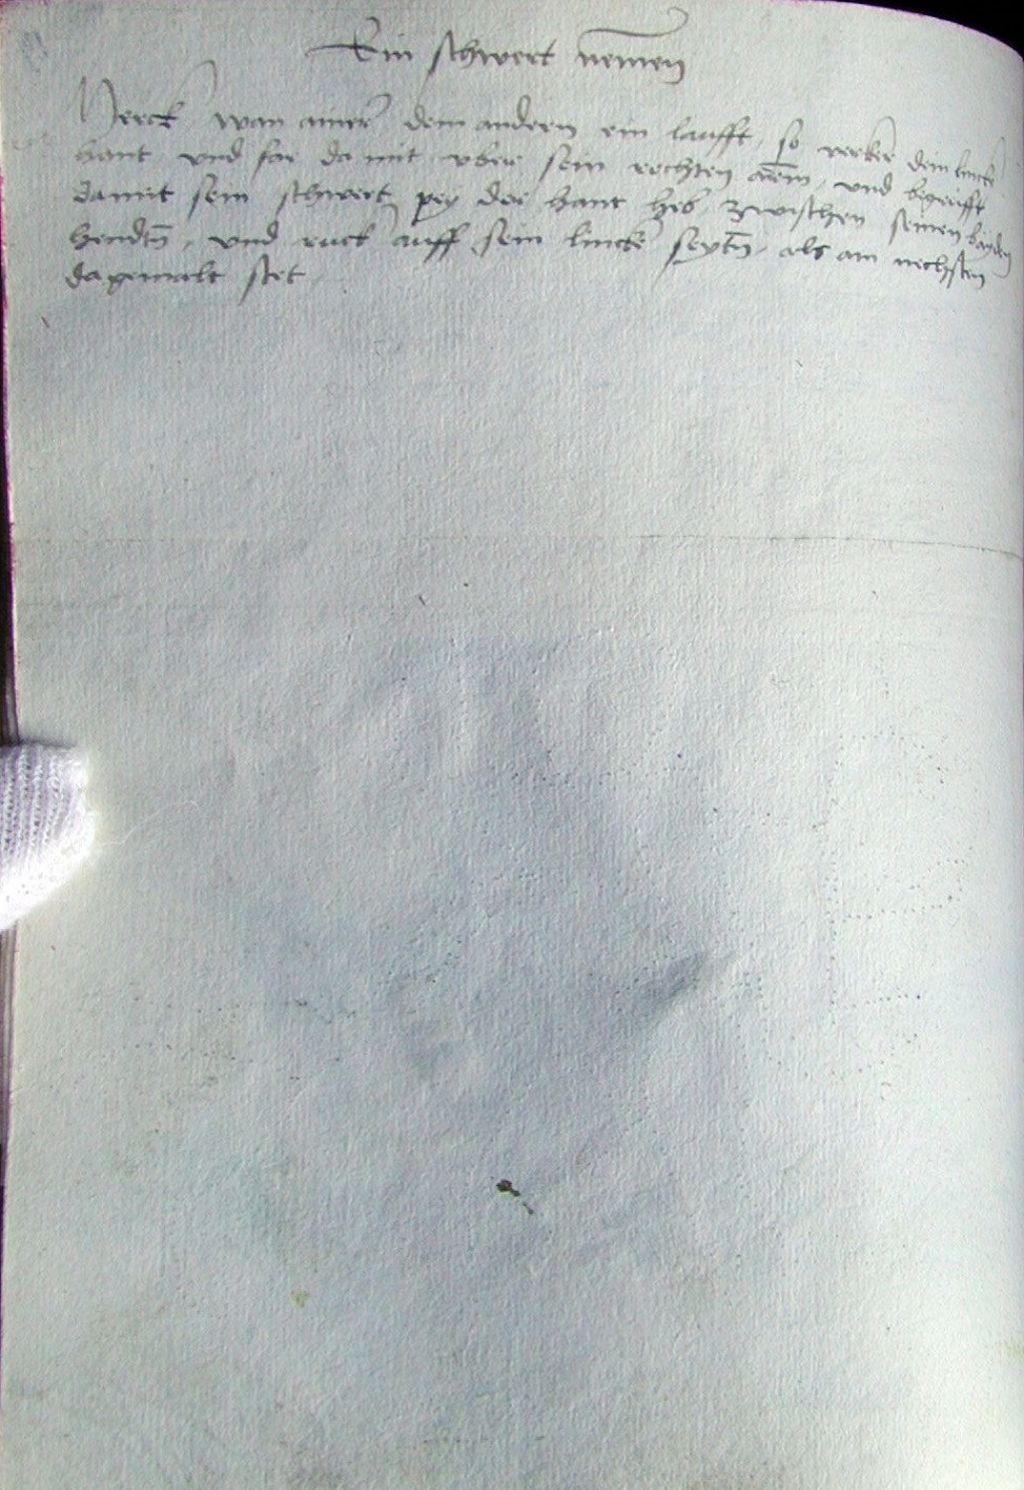 Ein schwert nemen
Merck wan ainer dem andern ein laufft so verker dein lincke
hant und far da mit uber sein rechten arem und begreifft
damit sein schwert pey der hant heb zwischen seinen bayden
hendtn̄ und ruck auff sein lincke seytn̄ als am nechsten
da gemalt stet